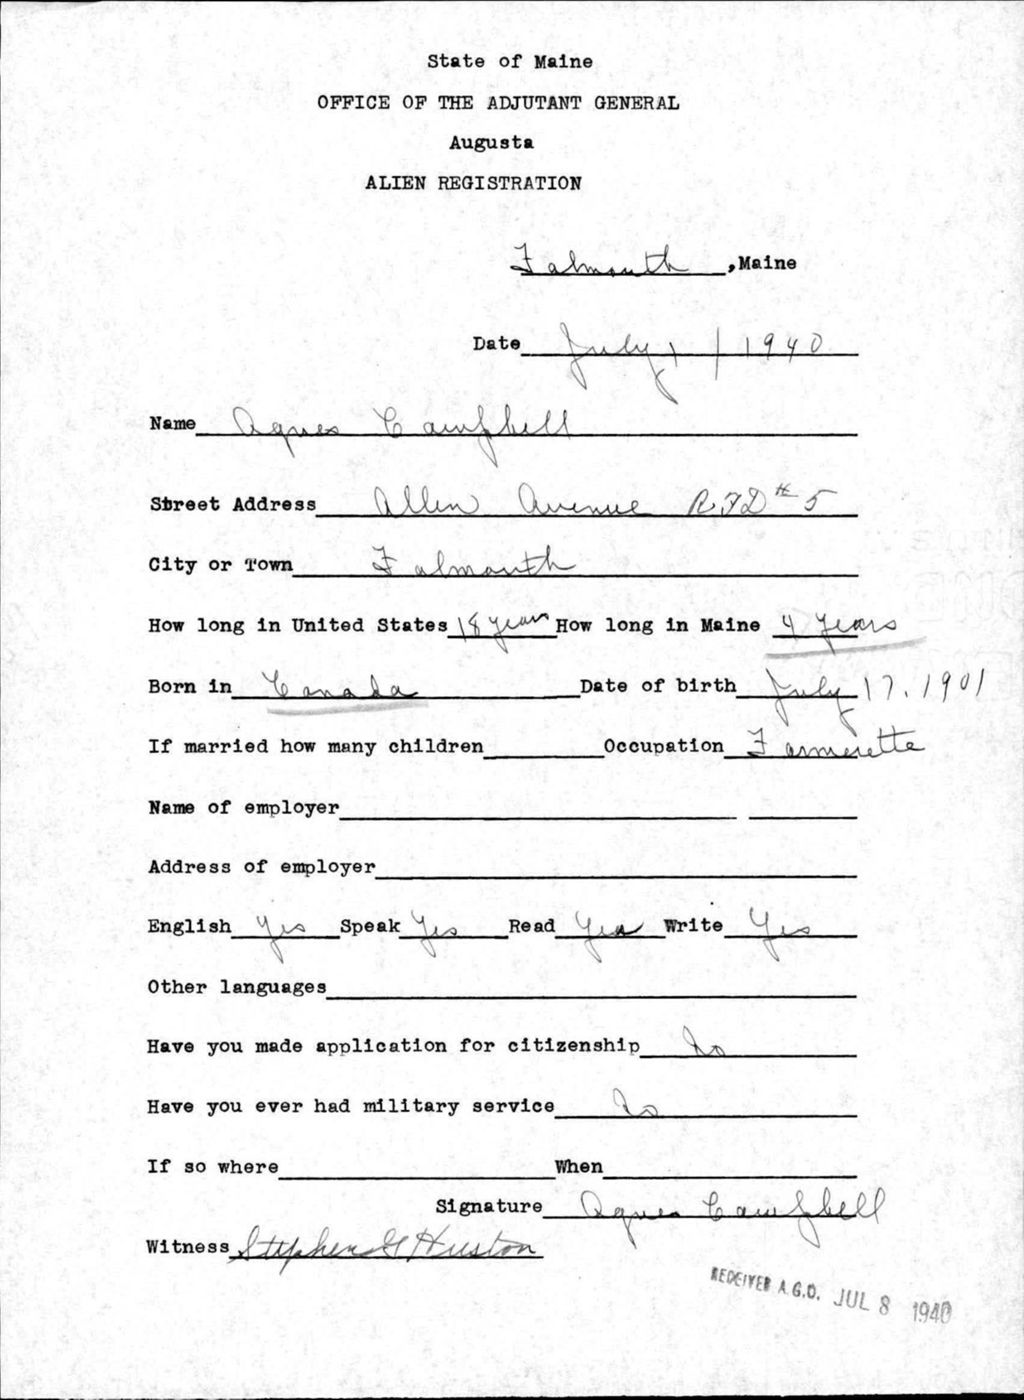 State of Maine
OFFICE OF THE ADJUTANT GENERAL
Augusta
ALIEN REGISTRATION
Falmouth, Maine
Date July 1, 1940
Name Agnes Campbell
Street Address Allen Avenue R.F.D #5
City or Town Falmouth
How long in United States 18 years How long in Maine 4 years
Born in Canada Date of birth July 17, 1901
If married how many children Occupation Farmerette
Name of employer
Address of employer
English Yes Speak Yes Read Yes Write Yes
Other languages
Have you made application for citizenship No
Have you ever had military service No
If so where When
Signature Agnes Campbell
Witness Stephen G Huston
RECEIVED A.G.O. JUL 8 1940